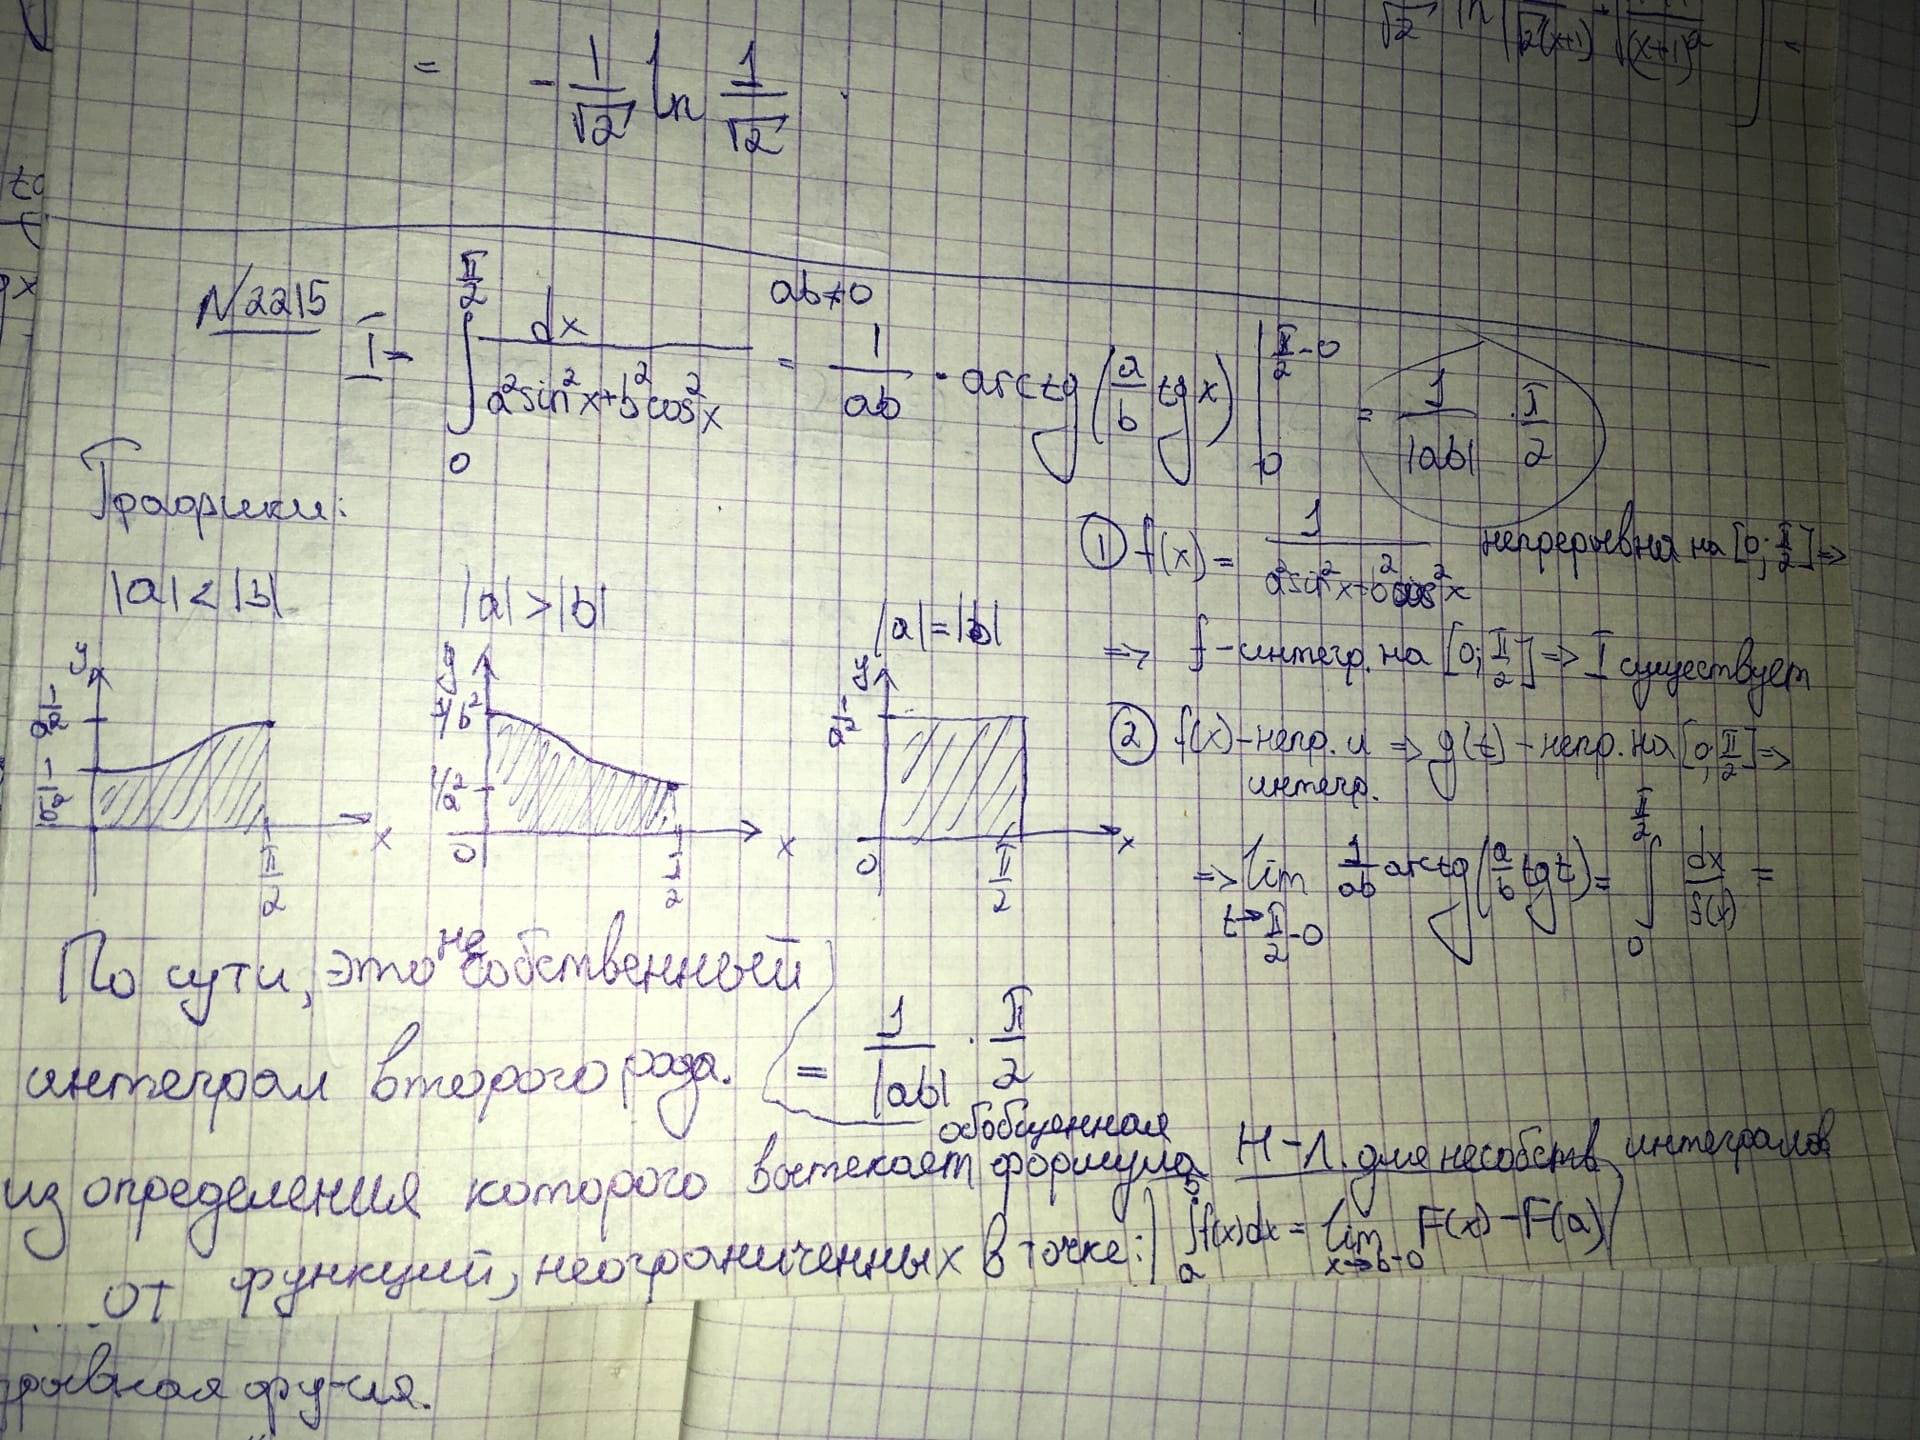 = - 1/√2 ln 1/√2 .
√2 ln √2(x+1) (x+1)²
N2215 I = ∫₀^(π/2) dx / (a²sin²x+b²cos²x) = 1/ab · arctg(a/b tg x) |₀^(π/2 -0) = 1/|ab| · π/2
ab≠0
Графики:
|a|<|b| |a|>|b| |a|=|b|
y 1/a² 1/b² π/2 x
y 1/b² 1/a² 0 π/2 x
y 1/a² 0 π/2 x
① f(x) = 1 / (a²sin²x+b²cos²x) непрерывна на [0; π/2] =>
=> f-интегр. на [0; π/2] => I существует
② f(x)-непр. и => g(t) - непр. на [0; π/2] =>
интегр.
=> lim t→π/2-0 1/ab arctg(a/b tg t) = ∫₀^(π/2) dx/f(x) =
= 1/|ab| · π/2
По сути, это несобственный
интеграл второго рода.
обобщенная
из определения которого вытекает формула Н-Л. для несобств. интегралов
от функций, неограниченных в точке: ∫ₐᵇ f(x)dx = lim x→b-0 F(x) - F(a)
рывная фу-ия.